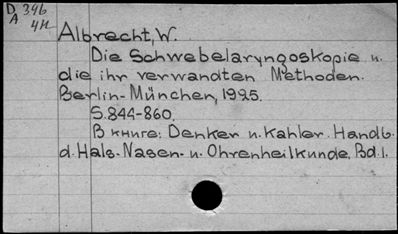 D 346
A 4н
Albrecht, W.
Die Schwebelaryngoskopie u.
die ihr verwandten Methoden.
Berlin-München, 1925.
S. 844-860.
В книге: Denker u. Kahler. Handb.
d. Hals- Nasen- u. Ohrenheilkunde. Bd. 1.